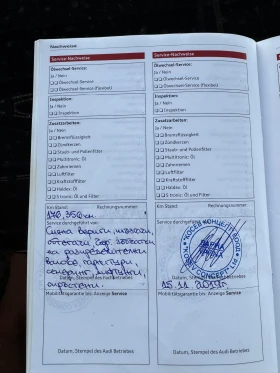 Nachweise
Service-Nachweise
Ölwechsel-Service:
Ja / Nein
Ölwechsel-Service
Ölwechsel-Service (Flexibel)
Inspektion:
Ja / Nein
Inspektion
Zusatzarbeiten:
Ja / Nein
Bremsflüssigkeit
Zündkerzen
Staub- und Pollenfilter
Multitronic: Öl
Zahnriemen
Luftfilter
Kraftstofffilter
Haldex: Öl
S tronic: Öl und Filter
Km Stand: Rechnungsnummer:
170,350 км.
Service durchgeführt von:
Смяна вериги, шпагали,
Datum, Stempel des Fachbetriebes
Mobilitätsgarantie bis: Anzeige Service
Datum, Stempel des Audi Betriebes
Service-Nachweise
Ölwechsel-Service:
Ja / Nein
Ölwechsel-Service
Ölwechsel-Service (Flexibel)
Inspektion:
Ja / Nein
Inspektion
Zusatzarbeiten:
Ja / Nein
Bremsflüssigkeit
Zündkerzen
Staub- und Pollenfilter
Multitronic: Öl
Zahnriemen
Luftfilter
Kraftstofffilter
Haldex: Öl
S tronic: Öl und Filter
Km Stand: Rechnungsnummer:
Service durchgeführt von:
ВАРНА
VARNA
15.11.2019г.
Mobilitätsgarantie bis: Anzeige Service
Datum, Stempel des Audi Betriebes